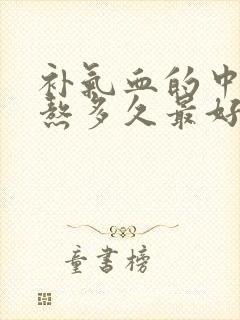 补气血的中
熬多久最好
童书榜